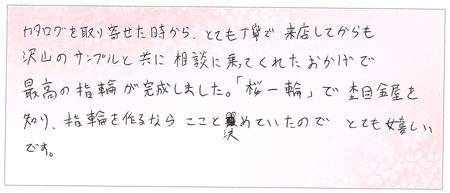 カタログを取り寄せた時から、とても丁寧で 来店してからも
沢山のサンプルと共に 相談に乗ってくれたおかげで
最高の指輪が完成しました。「桜一輪」で 杢目金屋を
知り、指輪を作るなら ここと決めていたので とても嬉しい
です。